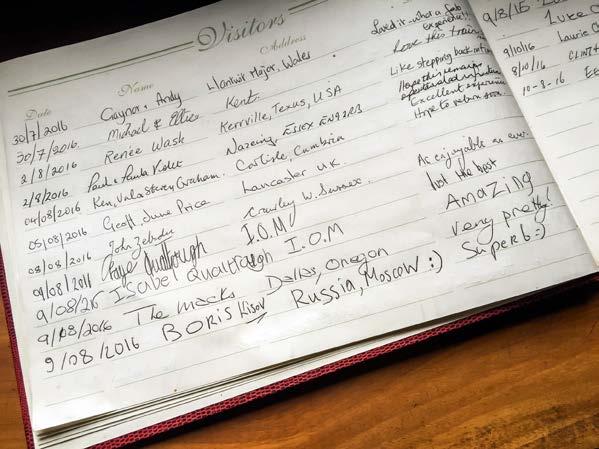 Visitors
Date Name Address
30/7/2016 Gaynor, Andy Llantwit Major, Wales Loved it - what a fab experience!!
30/7/2016 Michael & Ellie Kent. Love this train
2/8/2016 Renée Wash Kerrville, Texas, USA Like stepping back in
2/8/2016. Paul & Paula Nazeing ESSEX EN92RB Excellent experience
04/08/2016 Ken, Val Stacey Graham. Carlisle, Cumbria Hope to return soon.
05/08/2016 Geoff, June Price Lancaster UK.
08/08/2016 John Crawley W. Sussex. As enjoyable as ever.
09/08/2011 Faye Qualtrough I.O.M Just the best
9/08/216 Isabel Qualtrough I.O.M AmaZing
9/08/2016 The macks Dallas, Oregon very pretty!
9/08/2016 BORIS Kisov Russia, Moscow :) Superb :)
9/8/15
9/10/16 Laurie
8/10/16
10-8-16